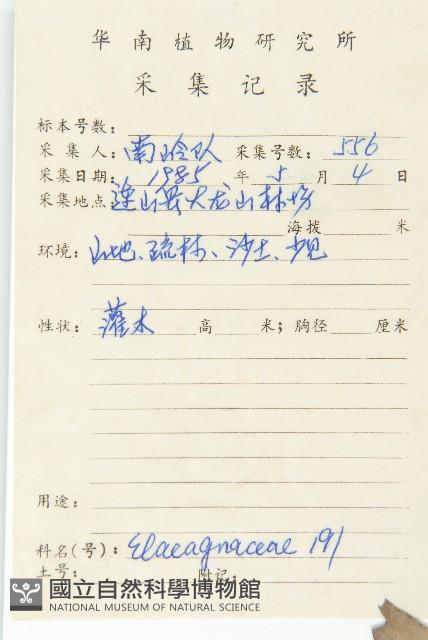 华南植物研究所
采集记录
标本号数：
采集人：南岭队 采集号数：556
采集日期：1985年5月4日
采集地点 连山县大龙山林场
海拔 米
环境：山地、疏林、沙土、少见
性状：灌木 高 米；胸径 厘米
用途：
科名(号)：Elaeagnaceae 191
土号： 附记：
國立自然科學博物館
NATIONAL MUSEUM OF NATURAL SCIENCE